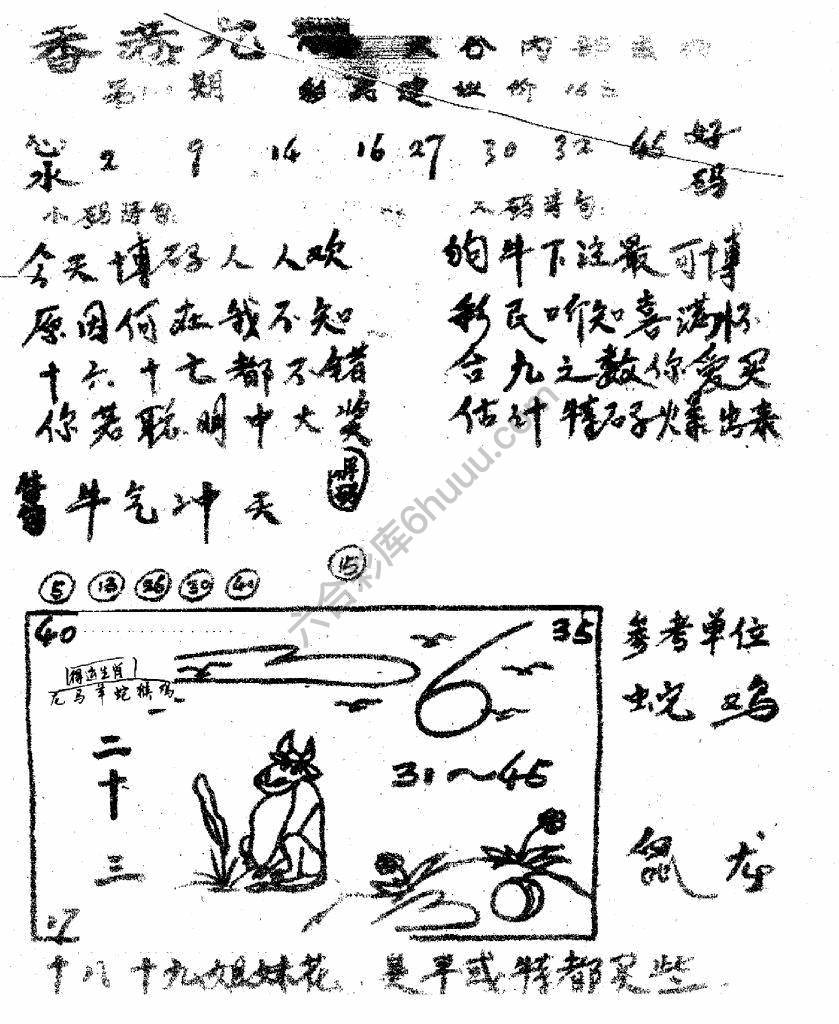 香港
期
2 9 14 16 27 30 32 45 好码
小码诗句
码诗句
今天博码人人欢
原因何在我不知
十六十七都不错
你若聪明中大奖
狗牛下注最可博
彩民听知喜满怀
合九之数你爱买
估计特码爆出来
牛气冲天
15
5 13 26 30 40
40
35
龙马羊蛇猴鸡
6
31~45
二十三
参考单位
蛇鸡
鼠龙
十八十九姐妹花 是平或特都买些
六合彩库6huuu.com